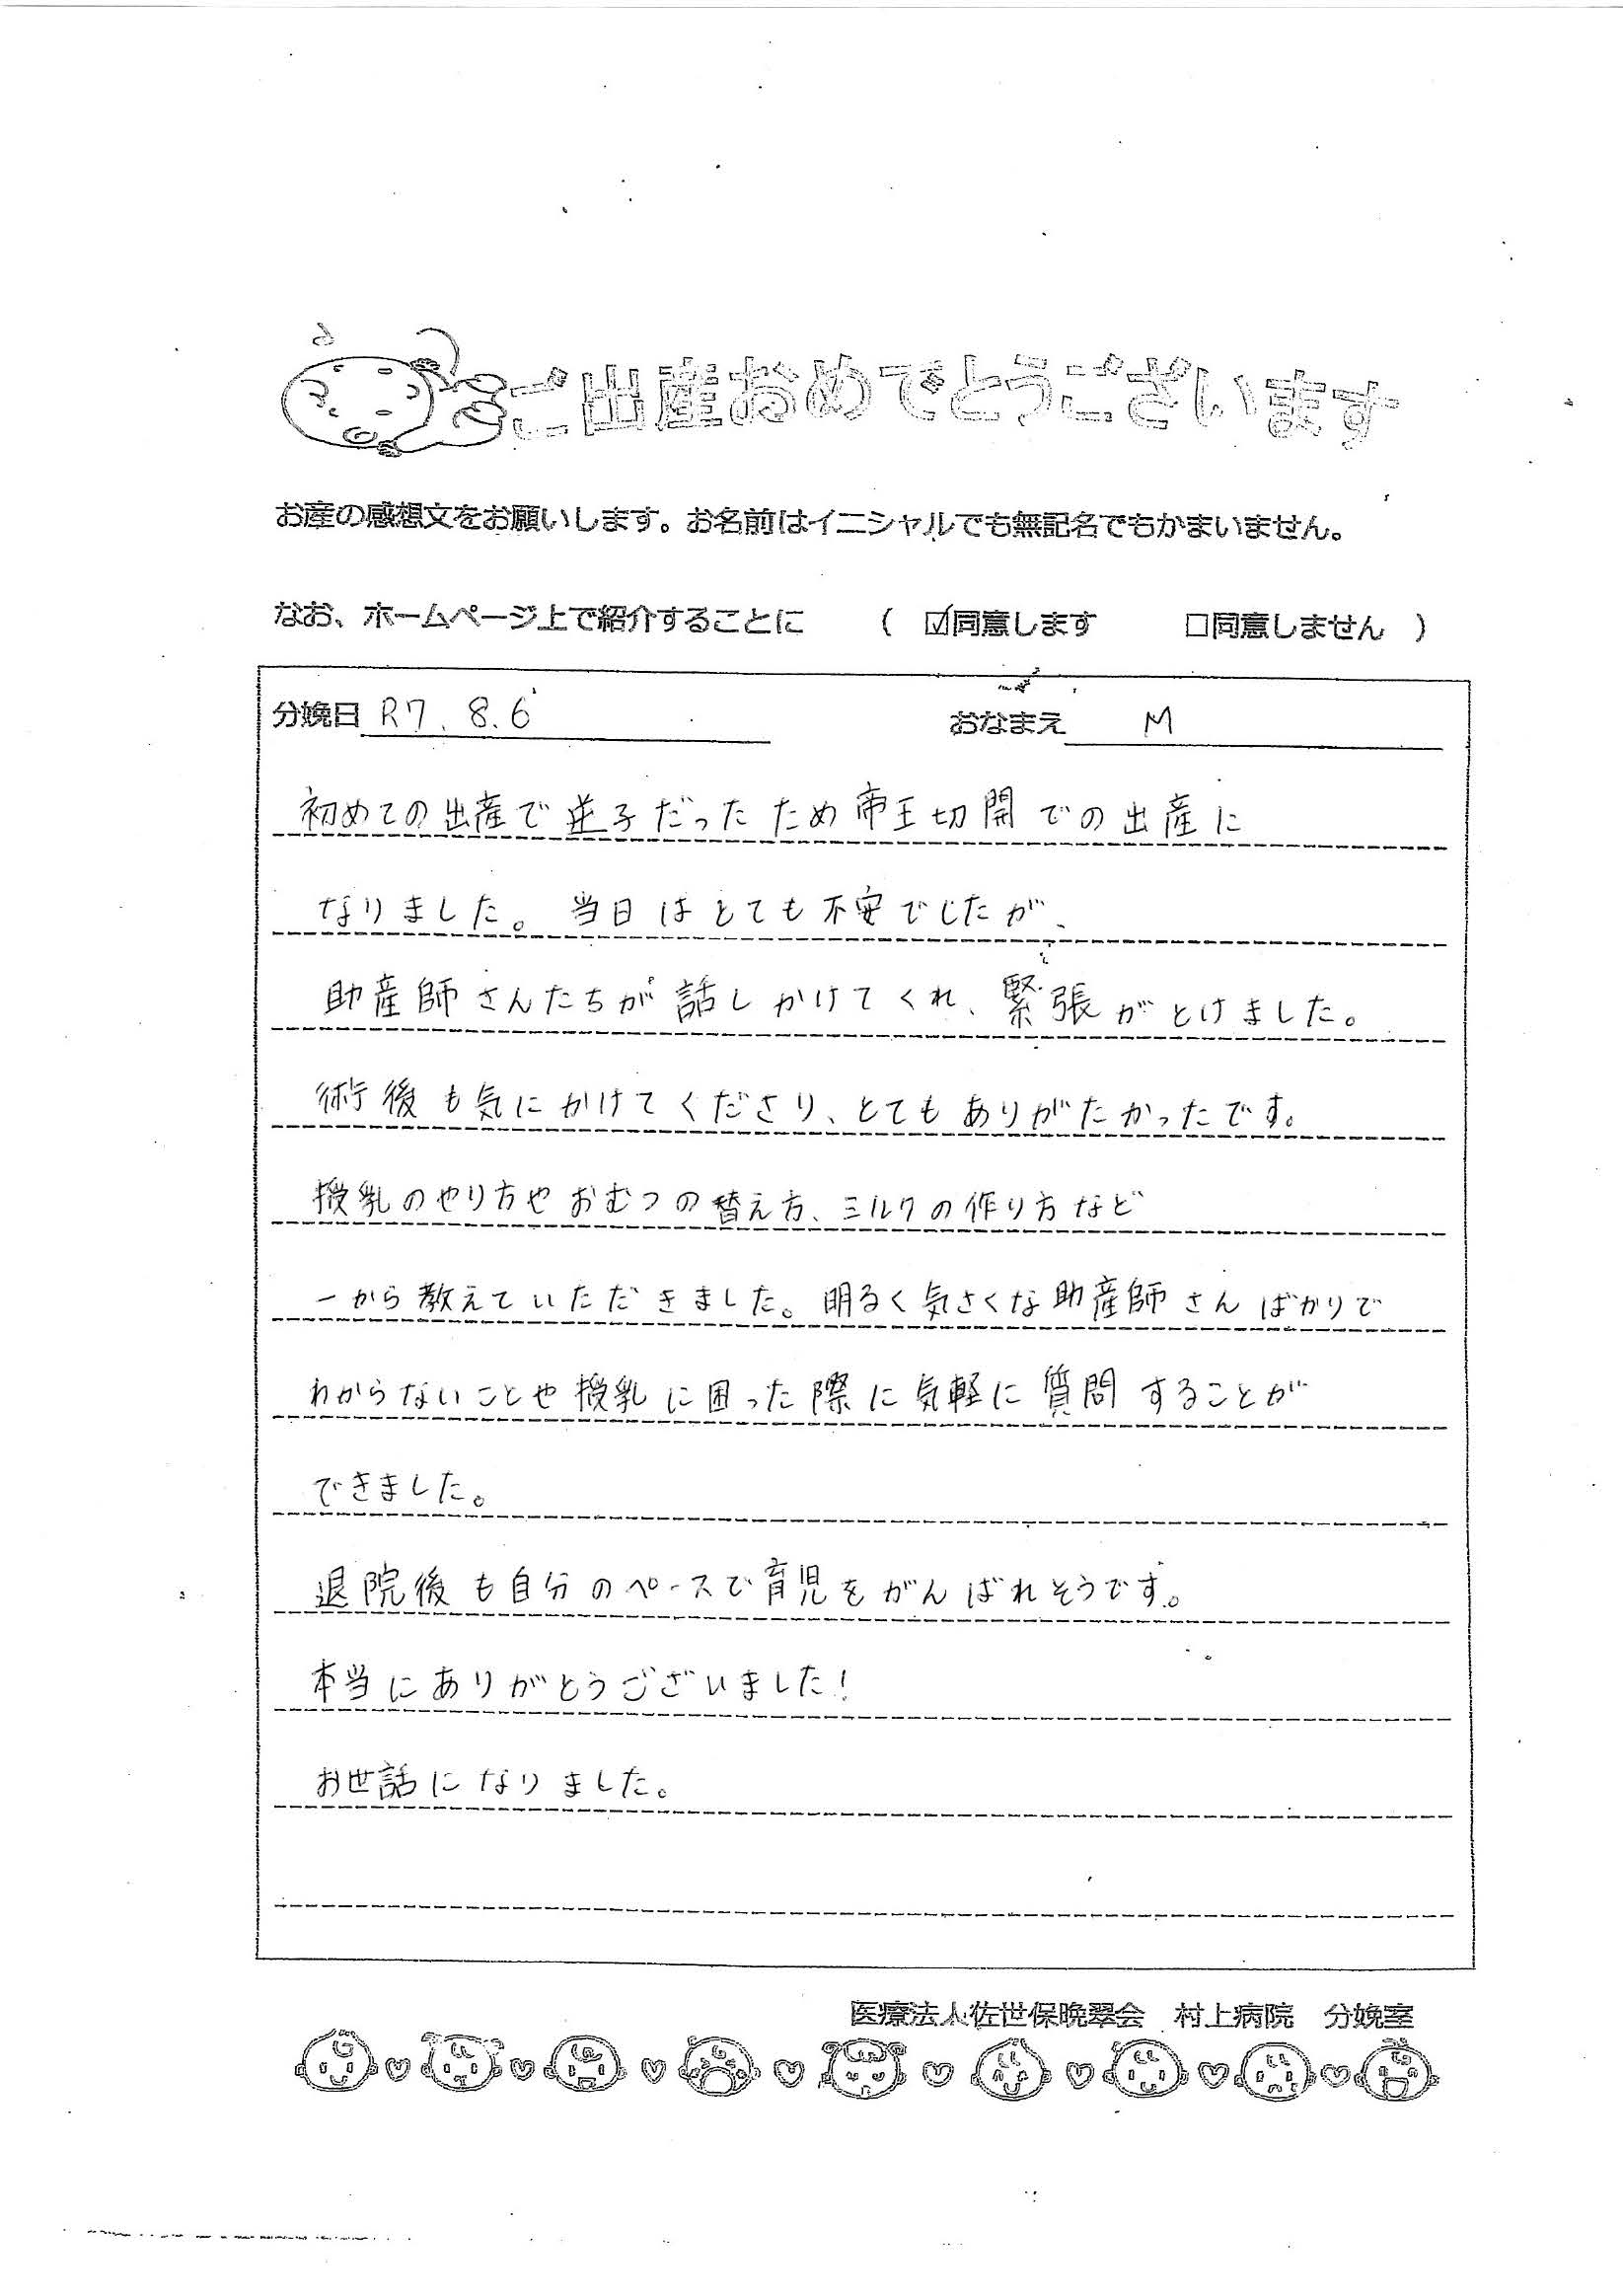 ご出産おめでとうございます
お産の感想文をお願いします。お名前はイニシャルでも無記名でもかまいません。
なお、ホームページ上で紹介することに （ ☑同意します □同意しません ）
分娩日 R7.8.6 おなまえ M
初めての出産で逆子だったため帝王切開での出産に
なりました。当日はとても不安でしたが、
助産師さんたちが話しかけてくれ、緊張がとけました。
術後も気にかけてくださり、とてもありがたかったです。
授乳のやり方やおむつの替え方、ミルクの作り方など
一から教えていただきました。明るく気さくな助産師さんばかりで
わからないことや授乳に困った際に気軽に質問することが
できました。
退院後も自分のペースで育児をがんばれそうです。
本当にありがとうございました！
お世話になりました。
医療法人佐世保晩翠会 村上病院 分娩室